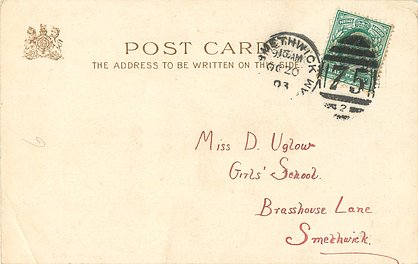 POST CARD
THE ADDRESS TO BE WRITTEN ON THIS SIDE.
SMETHWICK
OC 20
03
75
2
Miss D. Uglow
Girls' School.
Brasshouse Lane
Smethwick.